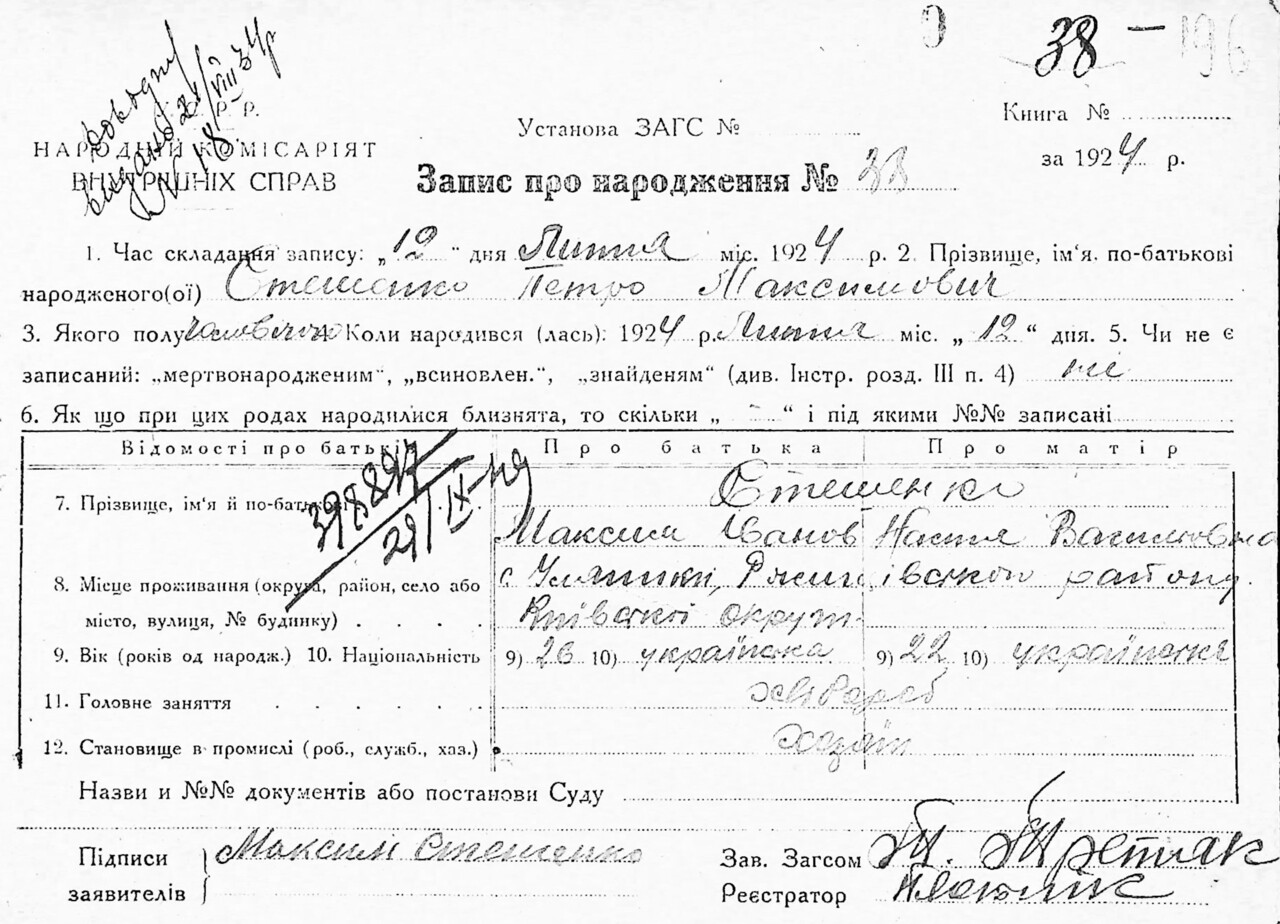 38 — 196
У. С. Р. Р.
НАРОДНІЙ КОМІСАРІЯТ
ВНУТРІШНІХ СПРАВ
видано 21/VIII 34 р
№ 118
Установа ЗАГС №
Книга №
за 1924 р.
Запис про народження № 38
1. Час складання запису: „12“ дня Липня міс. 1924 р. 2. Прізвище, ім'я, по-батькові
народженого(ої) Стешенко Петро Максимович
3. Якого полу чоловічого 4. Коли народився (лась): 1924 р. Липня міс. „12“ дня. 5. Чи не є
записаний: „мертвонародженим“, „всиновлен.“, „знайденям“ (див. Інстр. розд. III п. 4) ні
6. Як що при цих родах народилися близнята, то скільки „ - “ і під якими №№ записані
Відомості про батьків Про батька Про матір
398897
29/IX-49
7. Прізвище, ім'я й по-батькові Стешенко
Максим Іванов Настя Василіовна
8. Місце проживання (округа, район, село або с. Уляники, Ржищівської району
місто, вулиця, № будинку) Київської округи
9. Вік (років од народж.) 10. Національність 9) 26 10) українська 9) 22 10) українська
11. Головне заняття хлібороб
12. Становище в промислі (роб., служб., хаз.) хазяїн
Назви и №№ документів або постанови Суду
Підписи Максим Стешенко Зав. Загсом Т. Третяк
заявителів Реєстратор